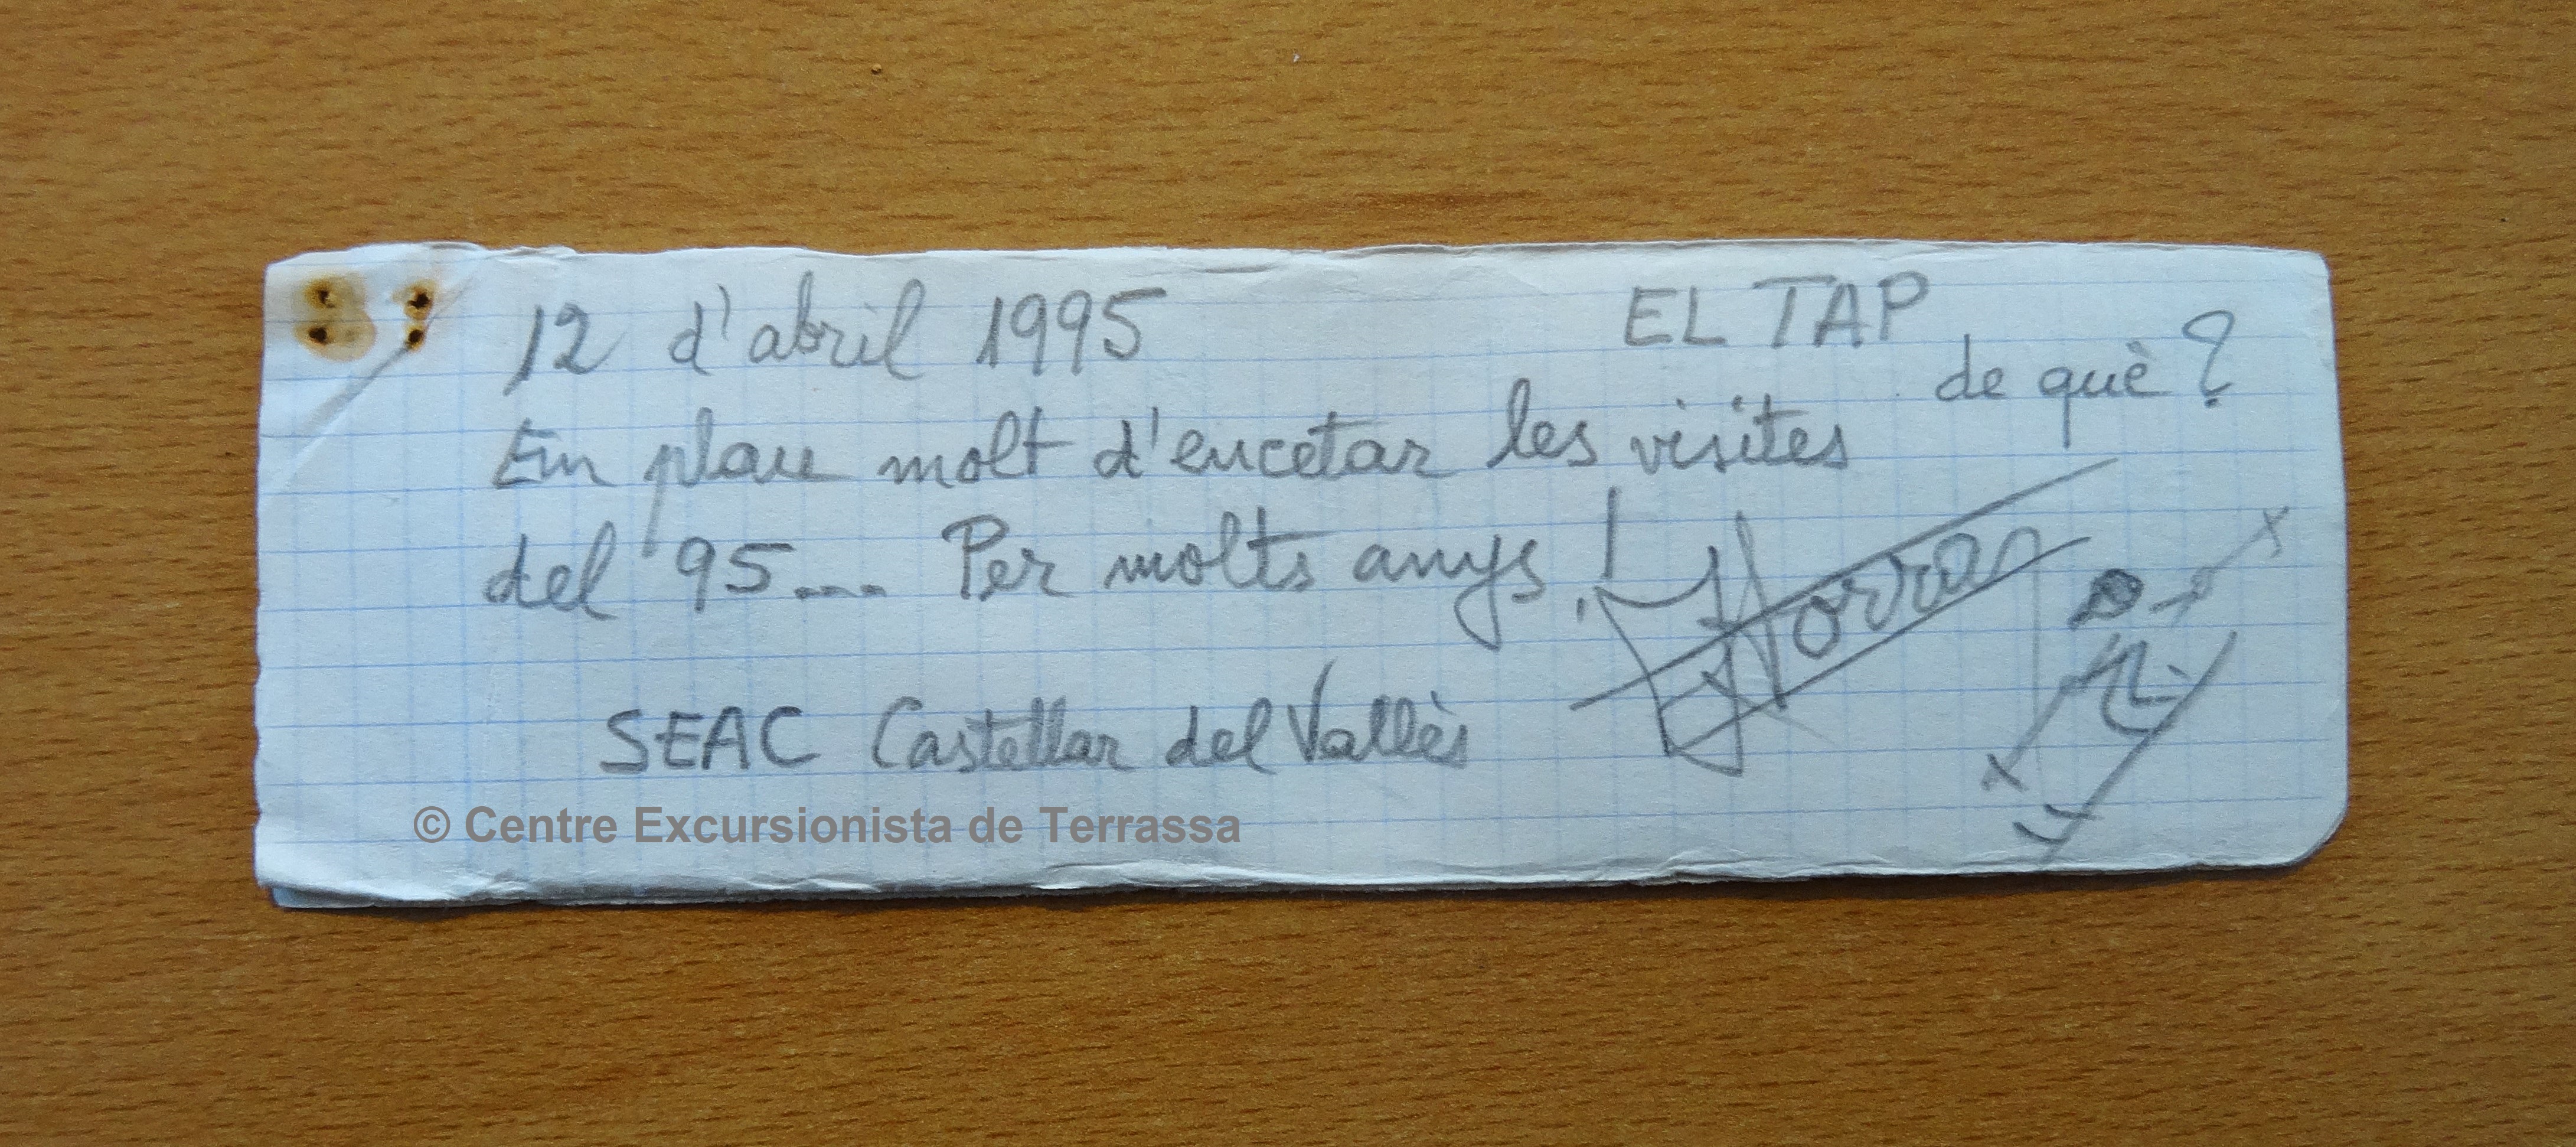 12 d'abril 1995
EL TAP
de què?
Em plau molt d'encetar les visites
del '95... Per molts anys!
SEAC Castellar del Vallès
© Centre Excursionista de Terrassa